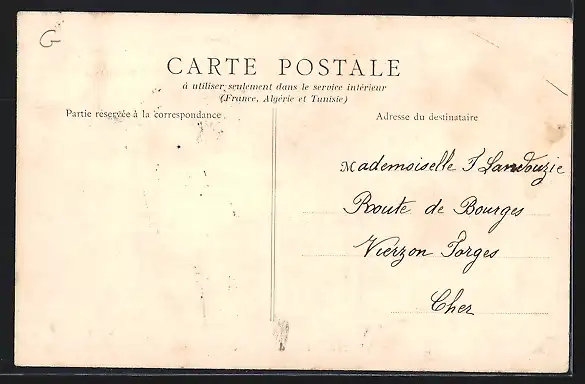 G
CARTE POSTALE
à utiliser seulement dans le service intérieur
(France, Algérie et Tunisie)
Partie réservée à la correspondance
Adresse du destinataire
Mademoiselle F Landouzie
Route de Bourges
Vierzon Forges
Cher